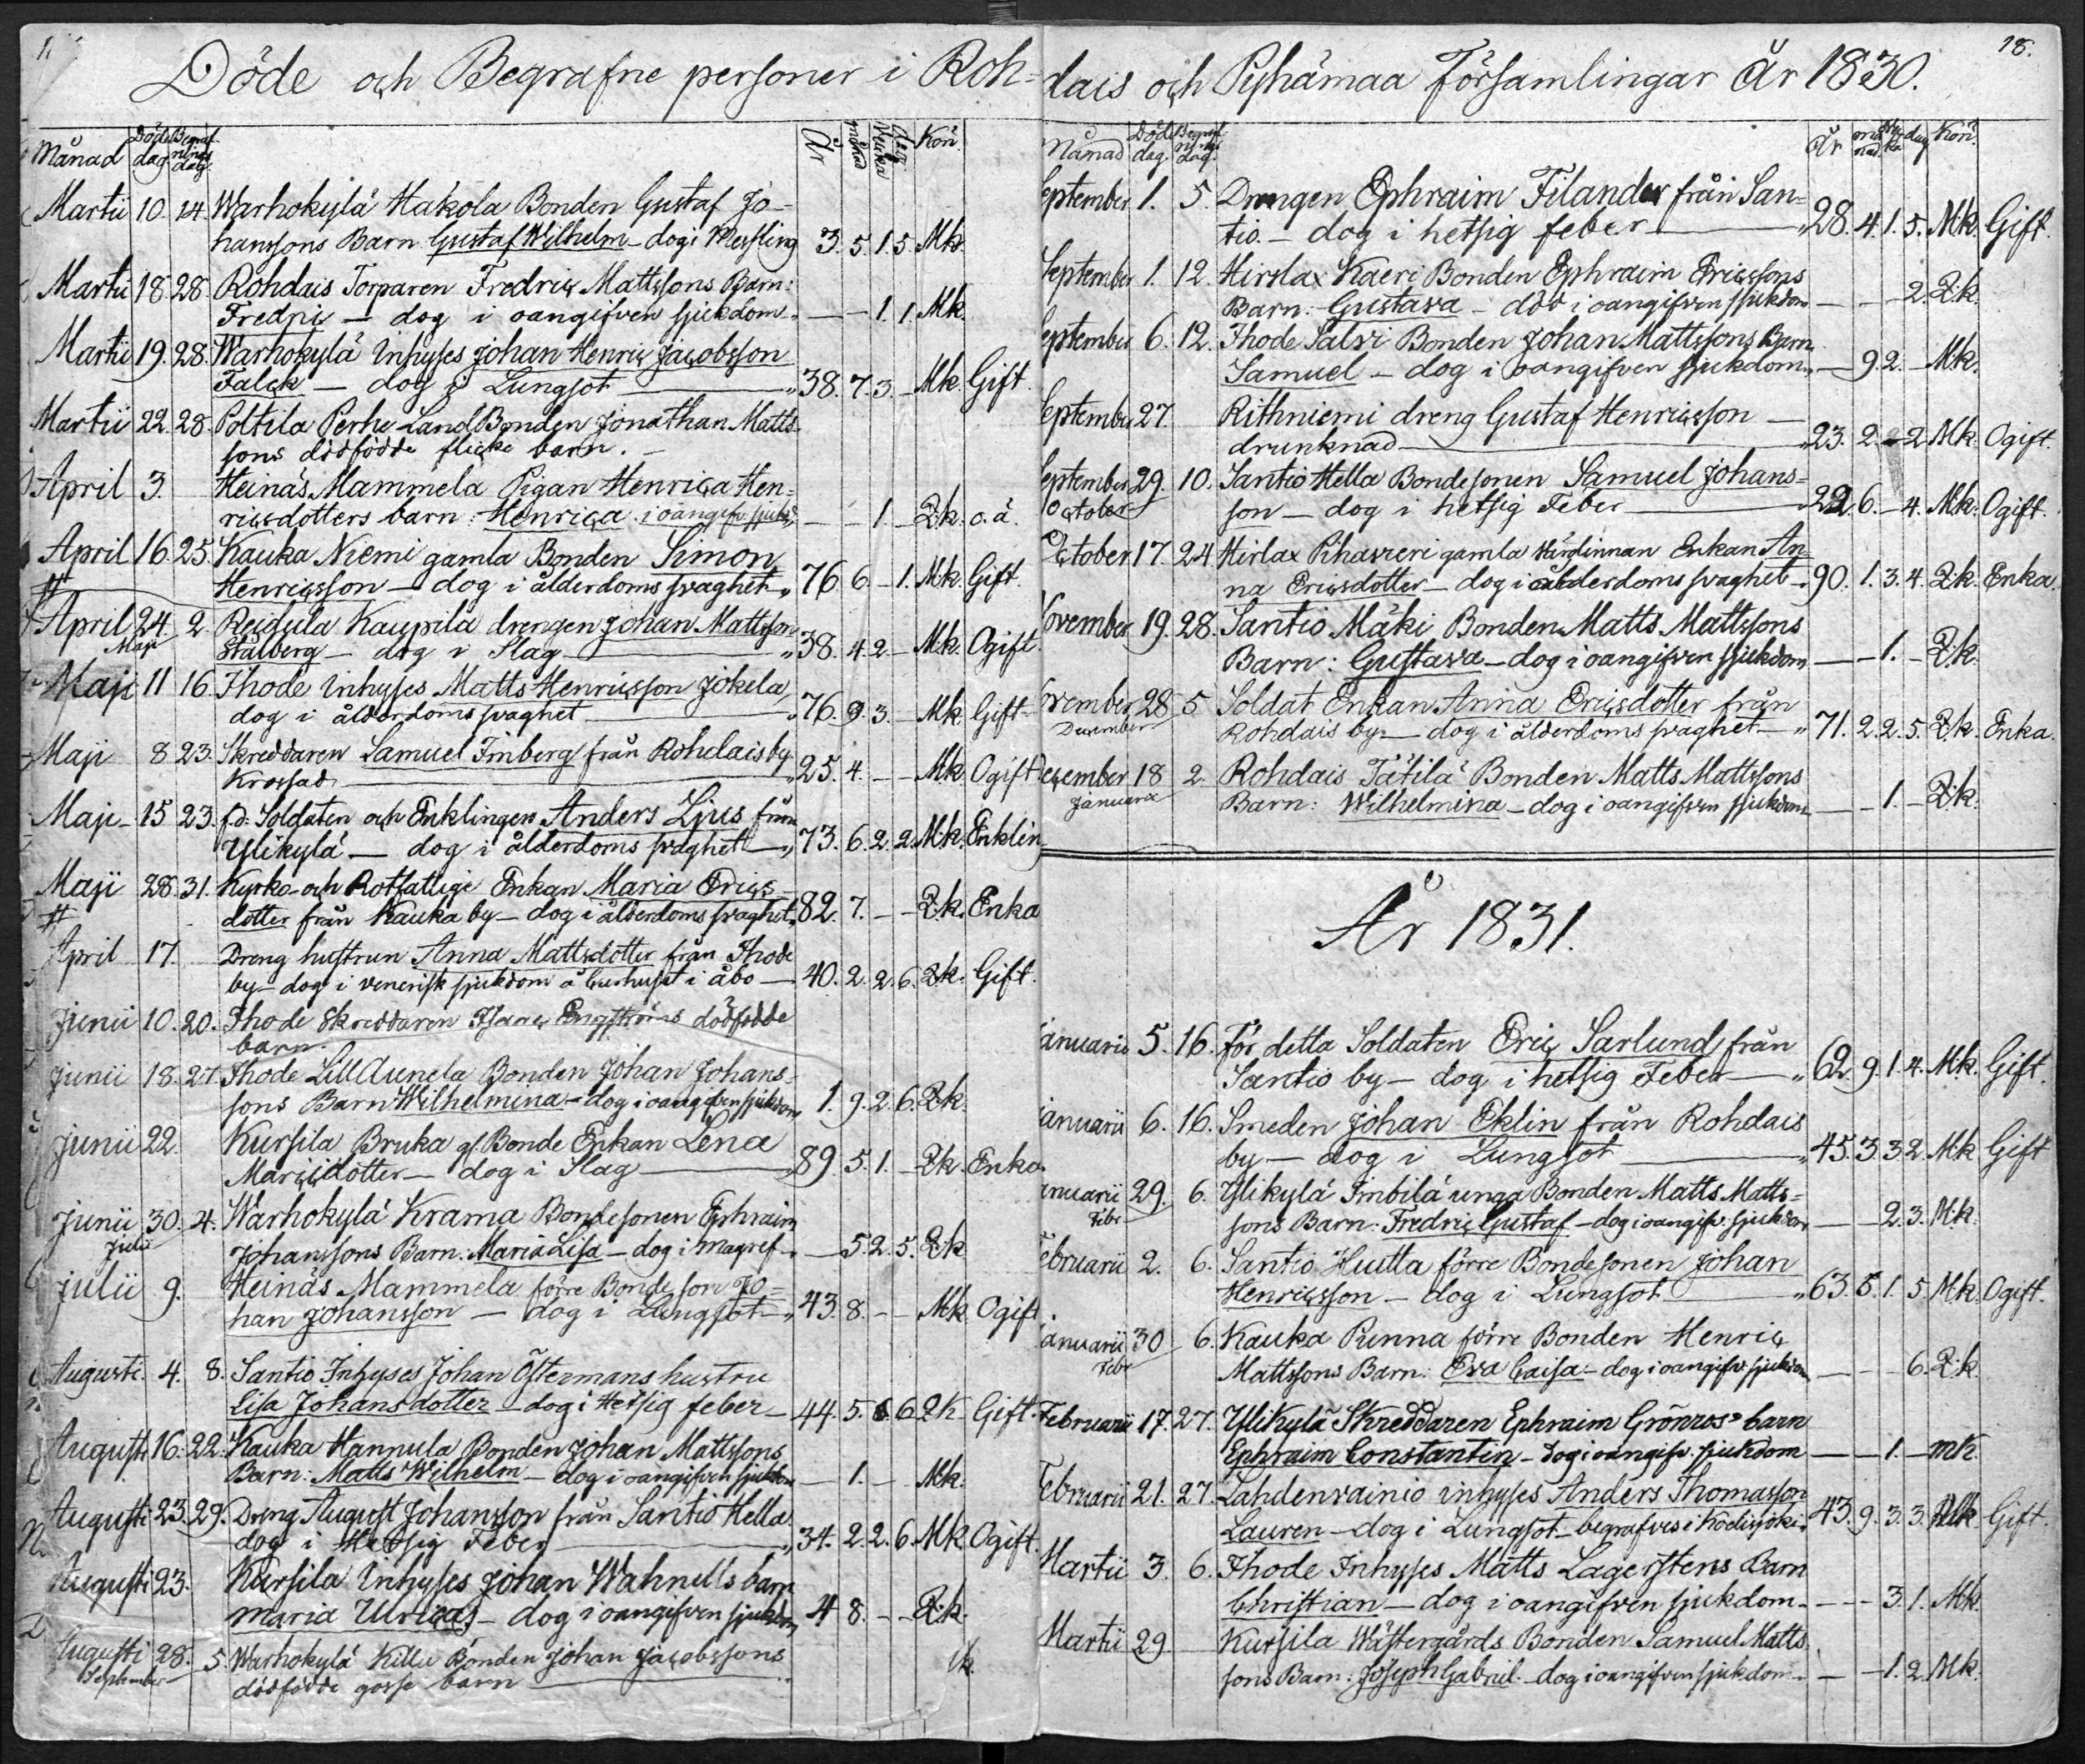 Döde och Begrafne personer i Roh-
Månad Döde dag Begrafnings dag År månad Vecka dag Kön
Martii 10. 14. Warhokylä Hakola Bonden Gustaf Jo-
hanssons Barn Gustaf Wilhelm - dog i Messling 3. 5. 1. 5 Mk.
Martii 18. 28. Rohdais Torparen Fredric Mattssons Barn:
Fredric - dog i oangifven sjukdom - - 1. 1. Mk.
Martii 19. 28. Warhokylä Inhyses Johan Henric Jacobsson
Falck - dog i Lungsot 38. 7. 3. - Mk Gift.
Martii 22. 28. Poltila Perhe Land Bonden Jonathan Matts
sons dödfödde flicke barn. -
April 3. Heinäs Mammela Pigan Henrica Hen-
ricsdotters barn: Henrica i oangifv sjukd - - 1 - Qk. o.ä.
April 16. 25. Kauka Niemi gamla Bonden Simon
Henricsson - dog i ålderdoms svaghet 76 6. - 1. Mk. Gift.
April 24. 2. Reidula Kaupila drengen Johan Mattsson
Maji Stålberg - dog i Slag 38. 4. 2. - Mk. Ogift.
Maji 11 16. Ihode Inhyses Matts Henricsson Jokela
dog i ålderdoms svaghet 76. 9. 3. - Mk. Gift
Maji 8 23. Skreddaren Samuel Finberg från Rohdais by
Krossad 25. 4. - - Mk. Ogift
Maji 15 23. f.d. Soldaten och Enklingen Anders Ljus från
Ylikylä - dog i ålderdoms svaghet 73. 6. 2. 2. Mk. Enkling
Maji 28. 31. Kyrko och Rotfattige Enkan Maria Erics-
dotter från Kauka by - dog i ålderdoms svaghet 82. 7. - - Qk. Enka
April 17. Dreng hustrun Anna Mattsdotter från Ihode
by - dog i venerisk sjukdom å Curhuset i åbo - 40. 2. 2. 6. Qk. Gift.
Junii 10. 20. Ihode Skreddaren Isaac Engströms dödfödde
barn.
Junii 18. 27. Ihode Lill Aunela Bonden Johan Johans-
sons Barn Wilhelmina - dog i oangifven sjukdom 1. 9. 2. 6. Qk.
Junii 22 Kursila Bruka gl. Bonde Enkan Lena
Maricsdotter - dog i Slag 89. 5. 1. - Qk. Enka
Junii 30. 4. Warhokylä Krama Bondesonen Ephraim
Julii Johanssons Barn. Maria Lisa - dog i Magref - 5. 2. 5. Qk
Julii 9. Heinäs Mammela förre Bonde son Jo-
han Johansson - dog i Lungsot 43. 8. - - Mk Ogift.
Augusti. 4. 8. Santio Inhyses Johan Östermans hustru
Lisa Johansdotter - dog i Hetsig feber - 44. 5. 6 6. Qk - Gift.
Augusti 16. 22. Kauka Hannula Bonden Johan Mattssons
Barn: Matts Wilhelm - dog i oangifven sjukdom - 1. - Mk.
Augusti 23. 29. Dreng August Johansson från Santio Hella
dog i Hetsig Feber 34. 2. 2. 6. Mk Ogift.
Augusti 23. Kursila Inhyses Johan Wahnell's barn
Maria Ulrica - dog i oangifven sjukdom 4 8. - - Qk.
Augusti 28. 5. Warhokylä Killu Bonden Johan Jacobssons
September dödfödde gosse barn
18.
dais och Pyhämaa Församlingar År 1830.
Månad Döde dag. Begrafnings dag. År månad Wecka dag Kön
September 1. 5. Drengen Ephraim Filander från San-
tio. - dog i hetsig feber 28. 4. 1. 5. Mk. Gift.
September 1. 12. Hirslax Kaeri Bonden Ephraim Ericssons
Barn: Gustava - död i oangifven sjukdom - - 2. Qk.
September 6. 12. Ihode Salvi Bonden Johan Mattssons Barn
Samuel - dog i oangifven sjukdom - 9. 2. - Mk.
September 27. Rithniemi dreng Gustaf Henricsson -
drunknad 23. 2. - 2 Mk. Ogift.
September 29. 10. Santio Hella Bondesonen Samuel Johans-
October son - dog i hetsig Feber 22. 6. - 4. Mk. Ogift.
October 17 24 Hirlax Pihavieri gamla Värdinnan Enkan An-
na Ericsdotter - dog i ålderdoms svaghet 90. 1. 3. 4. Qk. Enka.
November 19. 28. Santio Mäki Bonden Matts Mattssons
Barn: Gustava - dog i oangifven sjukdom - - 1. - Qk.
November 28 5 Soldat Enkan Anna Ericsdotter från
December Rohdais by - dog i ålderdoms svaghet 71. 2. 2. 5. Qk. Enka.
December 18 2. Rohdais Tätilä Bonden Matts Mattssons
Januarii Barn: Wilhelmina - dog i oangifven sjukdom - - 1. - Qk.
År 1831.
Januarii 5. 16. För detta Soldaten Eric Sarlund från
Santio by - dog i hetsig Feber 62 9. 1. 4. Mk. Gift.
Januarii 6. 16. Smeden Johan Eklin från Rohdais
by - dog i Lungsot 45. 3. 3 2. Mk Gift
Januarii 29. 6. Ylikylä Imbilä unga Bonden Matts Matts-
Febr sons Barn: Fredric Gustaf - dog i oangifv. sjukdom - - 2. 3. Mk.
Februarii 2. 6. Santio Hutta förre Bondesonen Johan
Henricsson - dog i Lungsot 63. 5. 1. 5 Mk. Ogift.
Januarii 30 6. Kauka Punna förre Bonden Henric
Febr Mattssons Barn: Eva Caisa - dog i oangifv sjukdom - - - 6. Qk.
Februarii 17. 27. Ylikylä Skreddaren Ephraim Grönros' barn
Ephraim Constantin - dog i oangifv. sjukdom - - 1. - mk.
Februarii 21. 27. Lahdenvainio inhyses Anders Thomasson
Lauren - dog i Lungsot - begrafves i Kodisjoki 43. 9. 3. 3. Mk Gift.
Martii 3. 6. Ihode Inhyses Matts Lagerstens Barn
Christian - dog i oangifven sjukdom - - 3. 1. Mk.
Martii 29. Kursila Wästergårds Bonden Samuel Matts
sons Barn: Joseph Gabriel - dog i oangifven sjukdom - - 1. 2. Mk.